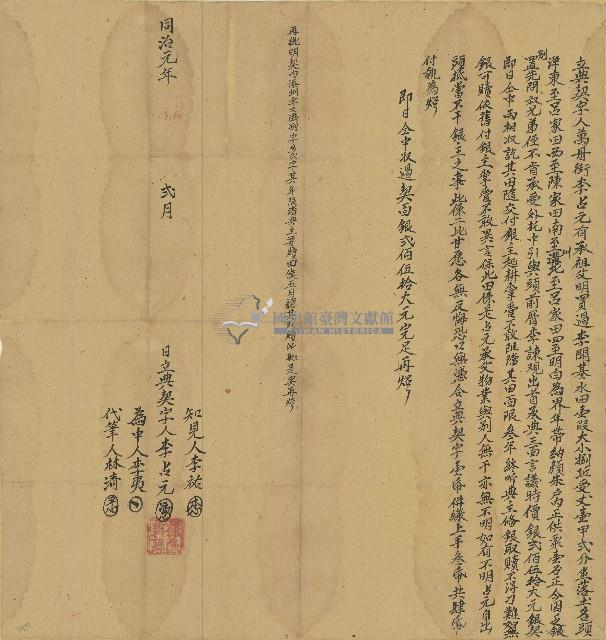 立典契字人萬丹街李占元有承祖父明買過李開基水田壹段大小捌坵受丈壹甲弍分坐落土名頭
洋東至呂家田西至陳家田南至圳北至呂家田四至明白為界年帶納顏朱戶內正供粟壹石正今因乏銀
別置先問叔兄弟侄不肯承受外托中引與頭前厝李諫觀出首承典三面言議時價銀弍佰伍拾大元銀契
即日仝中兩相收訖其田隨交付銀主起耕掌管不敢阻擋其田面限叁年終聽典主備銀取贖不得刁難如無
銀可贖依舊付銀主掌管不敢異言保此田係是占元承父物業與別人無干亦無不明如有不明占元自出
頭抵當不干銀主之事此係二比甘愿各無反悔恐口無憑合立典契字壹紙併繳上手叁紙共肆紙
付執為炤
即日仝中收過契面銀弍佰伍拾大元完足再炤
再批明契內添圳字又添別字
同治元年
弍月
日立典契字人李占元
知見人李祐
為中人李夷
代筆人林濟
國史館臺灣文獻館
TAIWAN HISTORICA